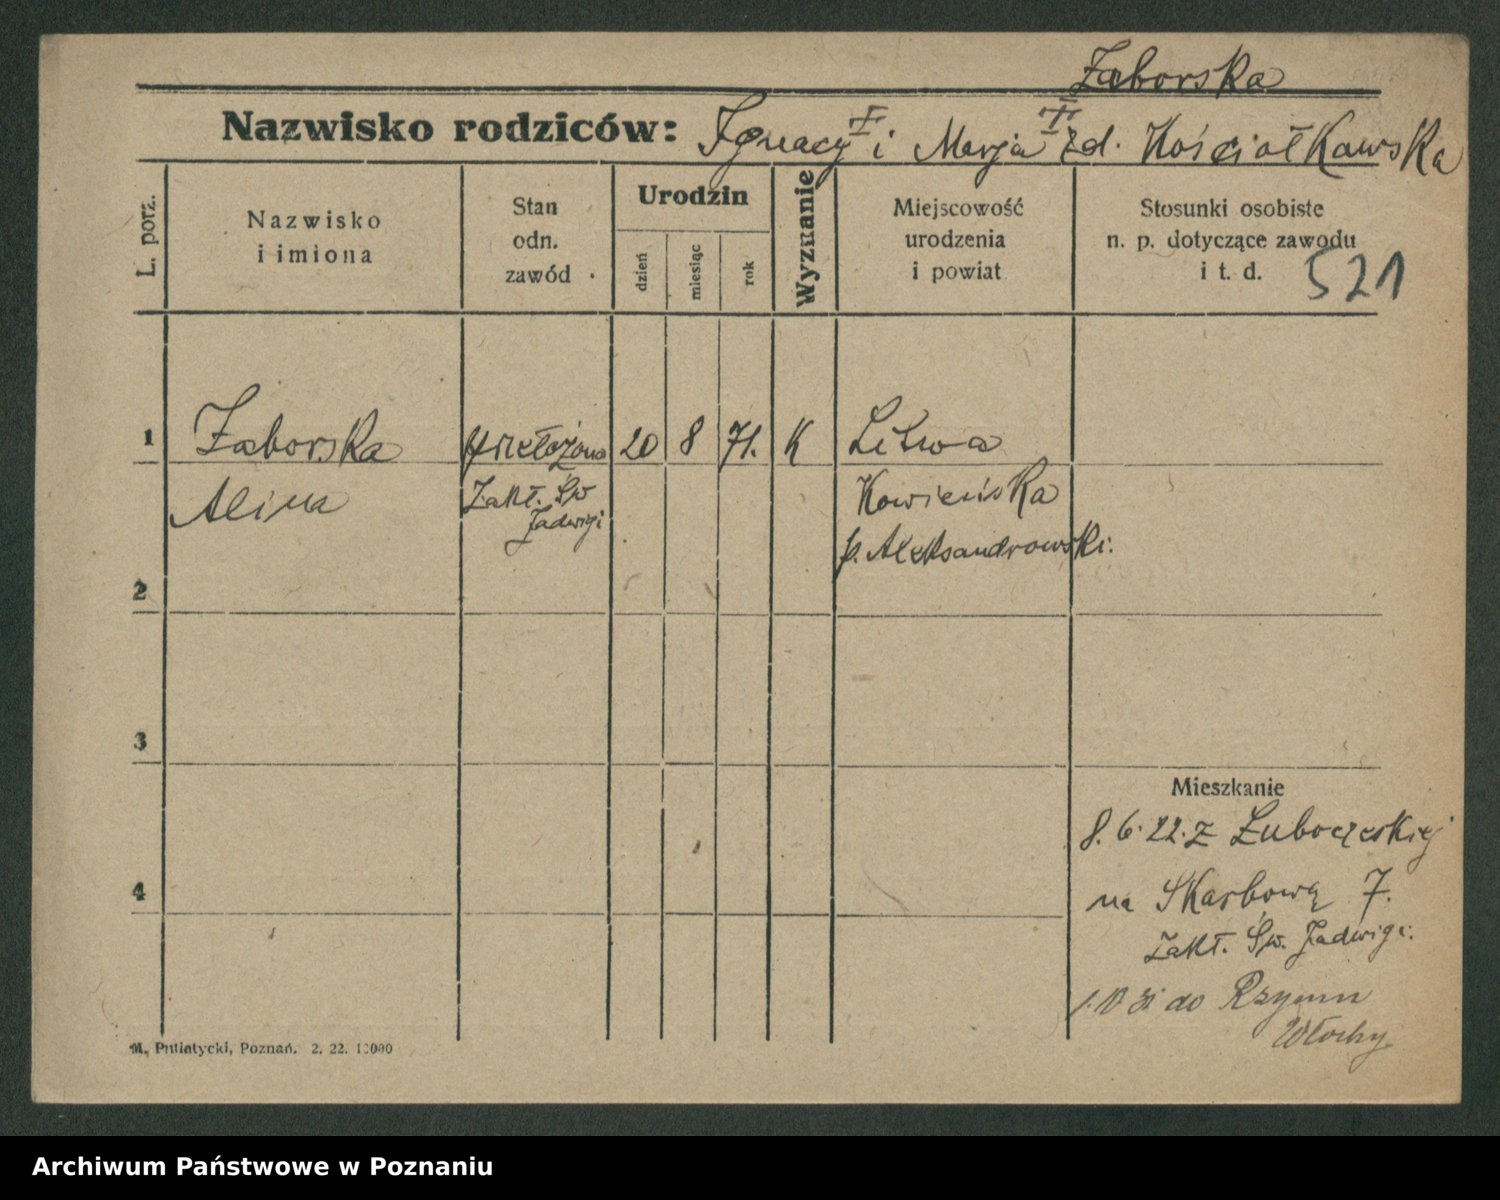 Zaborska
Nazwisko rodziców: Ignacy † i Marja † zd. Kościałkowska
L. porz.
Nazwisko
i imiona
Stan
odn.
zawód
Urodzin
dzień
miesiąc
rok
Wyznanie
Miejscowość
urodzenia
i powiat
Stosunki osobiste
n. p. dotyczące zawodu
i t. d.
521
1
Zaborska
przełożona
20
8
71.
K
Litwa
Alina
Zakł. Św
Jadwigi
Kowieńska
p. Aleksandrowski.
2
3
4
Mieszkanie
8.6.22. z
na Skarbową 7.
Zakł. Św. Jadwigi.
do Rzymu
Włochy
M. Putiatycki, Poznań. 2. 22. 10000
Archiwum Państwowe w Poznaniu